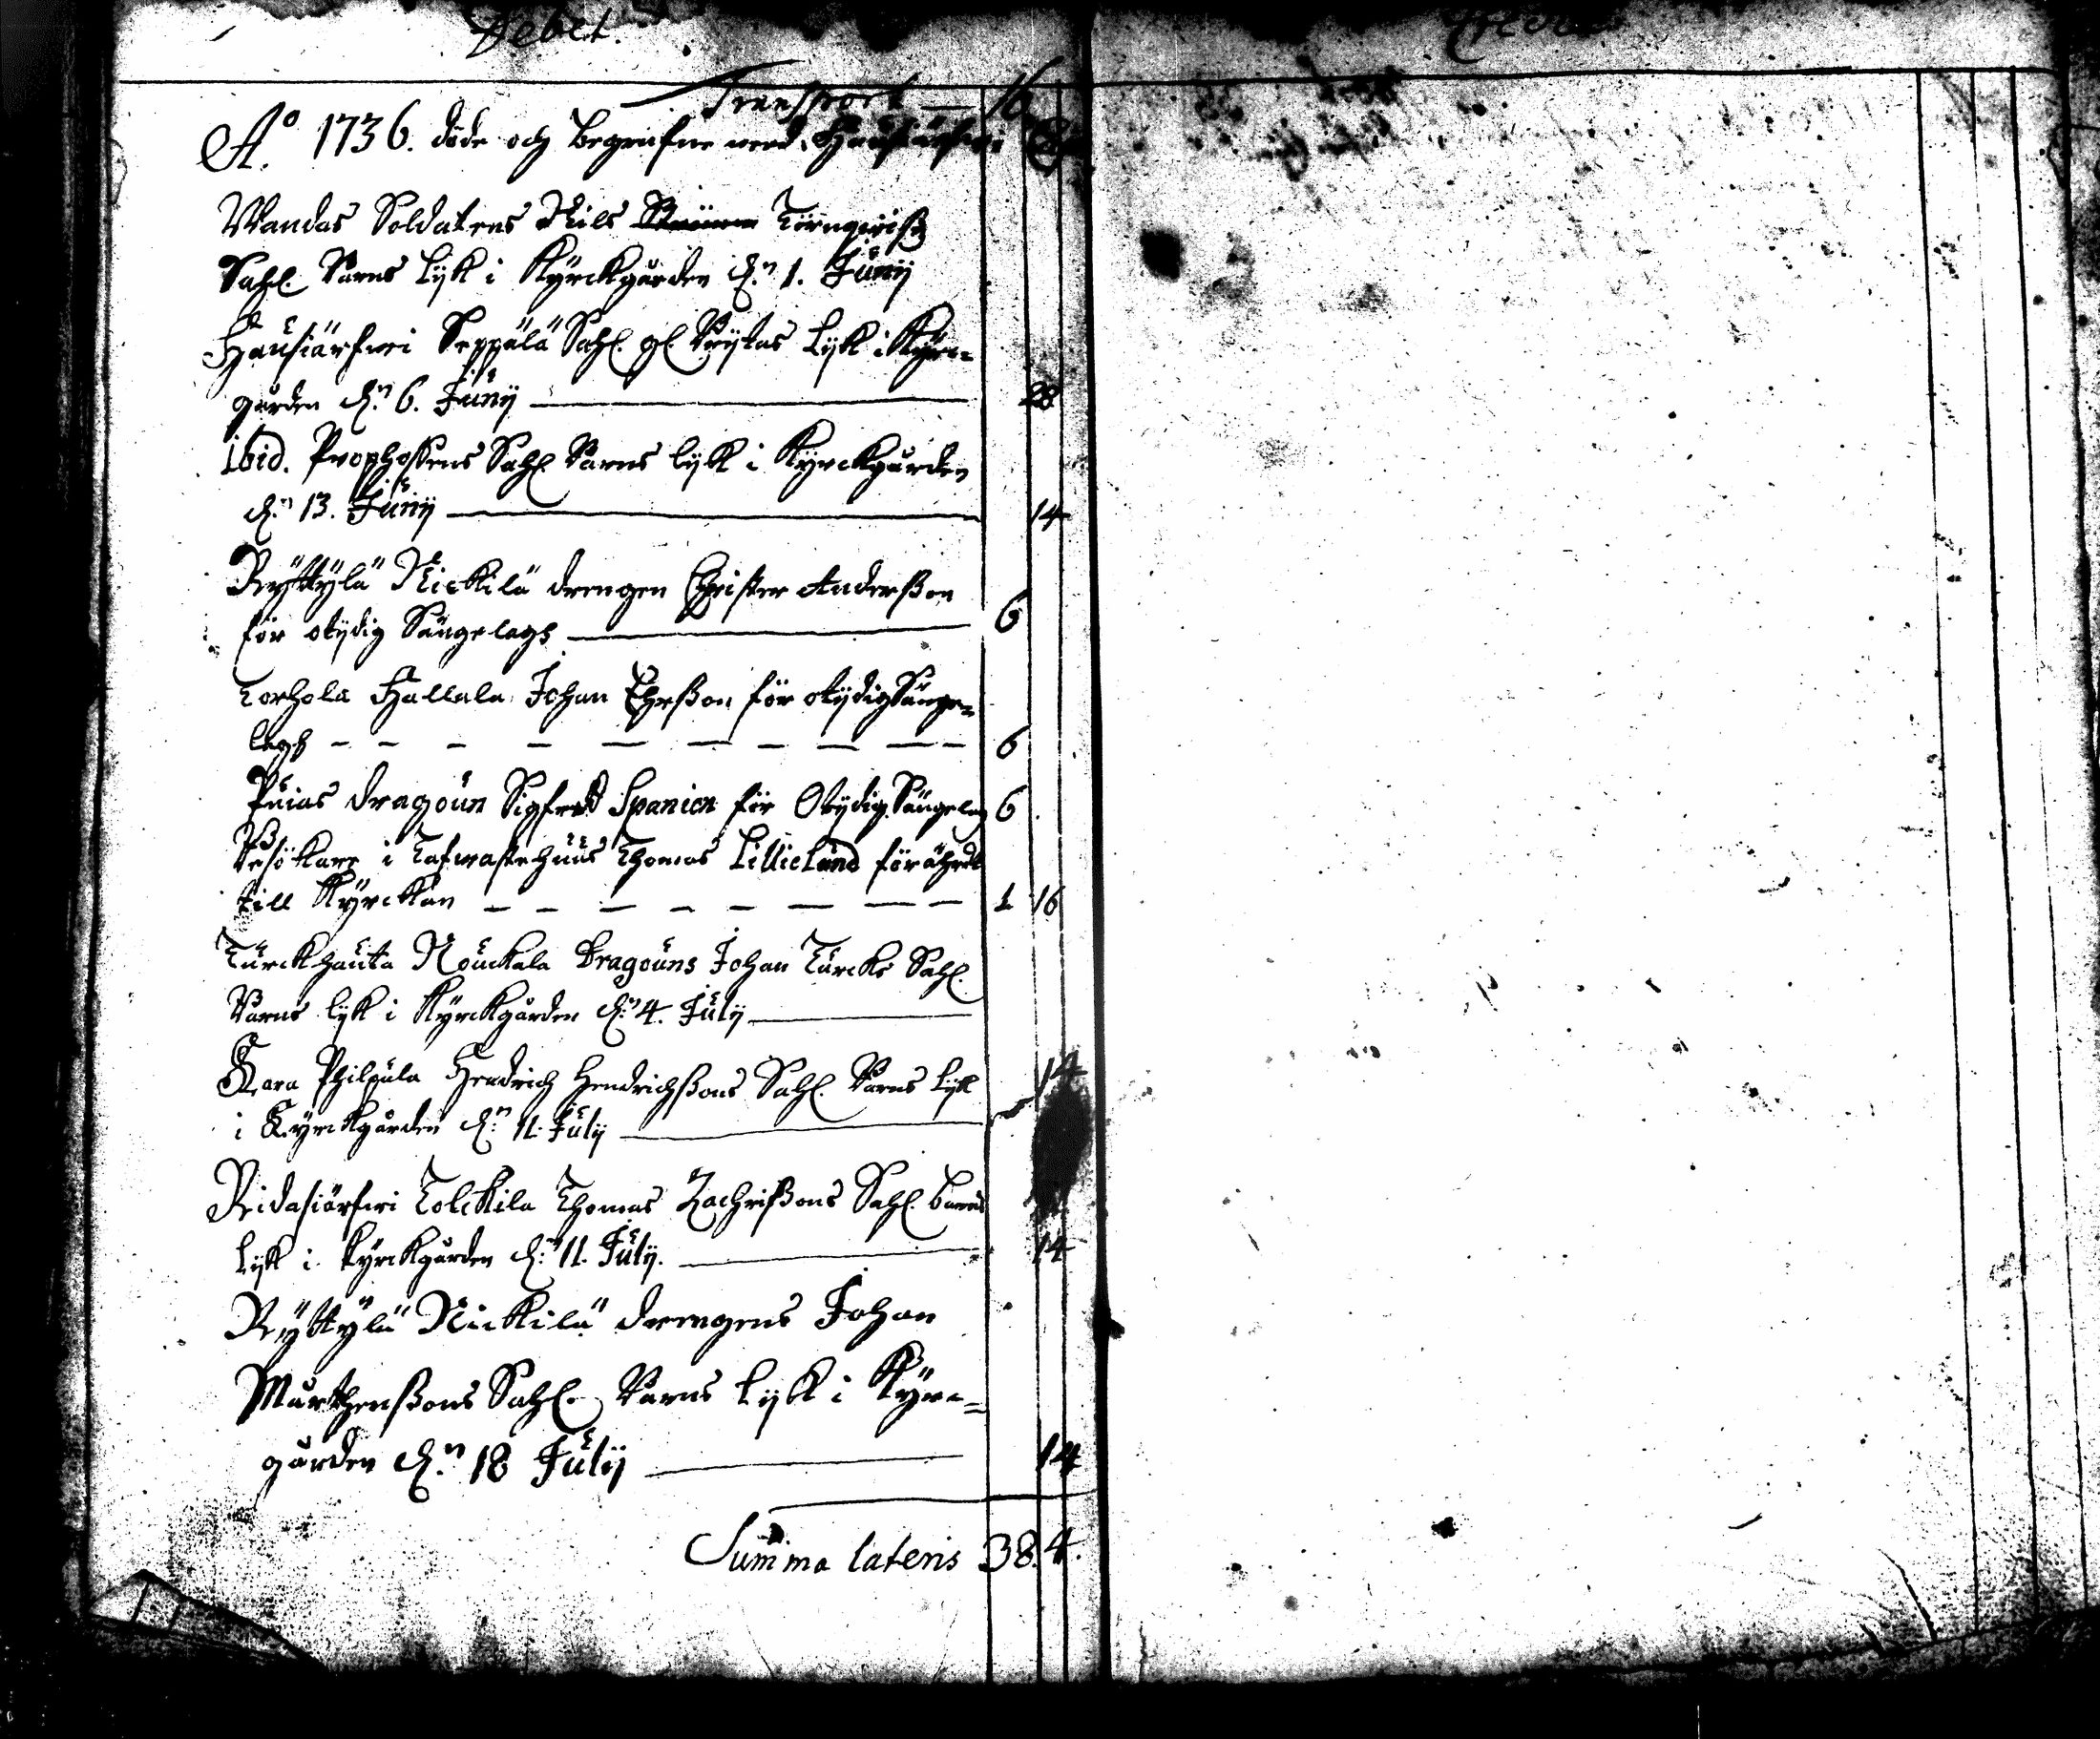 Debet.
Transport — 16
A:o 1736. döde och begrafne
Wandas Soldatens Nils Törnqwist
Sahl. Barns Lijk i Kyrckgården d:n 1. Junij
Hausiärfwi Seppälä Sahl. gl. Lijk i Kyrc=
gården d:n 6. Junij — 28
ibid. Prophossens Sahl Barns lijk i Kyrckgården
d:n 13. Junij — 14
Ryttylä Nickilä drengen Christer Anderßon
för otydig Sängelags — 6
Torhola Hallala Johan Ehrßon för otydig Sänge=
lags — — — — — — — — — — 6
Puias dragoun Sigfred Spanien för Otydig Sängelag 6
Besökare i Tafwastehuus Thomas Lillielund förährdt
till Kyrckan — — — — — — — — 1 16
Turckhauta Nouckala Dragouns Johan Turcks Sahl.
Barns lijk i Kyrckgården d:n 4. Julij —
Kara Philpula Hendrich Hendrichßons Sahl. Barns Lijk 14
i Kyrckgården d:n 11. Julij —
Ridasiärfwi Tolckila Thomas Zachrißons Sahl. barns
Lijk i kyrckgården d:n 11. Julij. — 14
Ryttylä Nickilä drengens Johan
Mårthenßons Sahl. Barns Lijk i Kyrc=
gården d:n 18 Julij — 14
Summa lateris 38. 4.